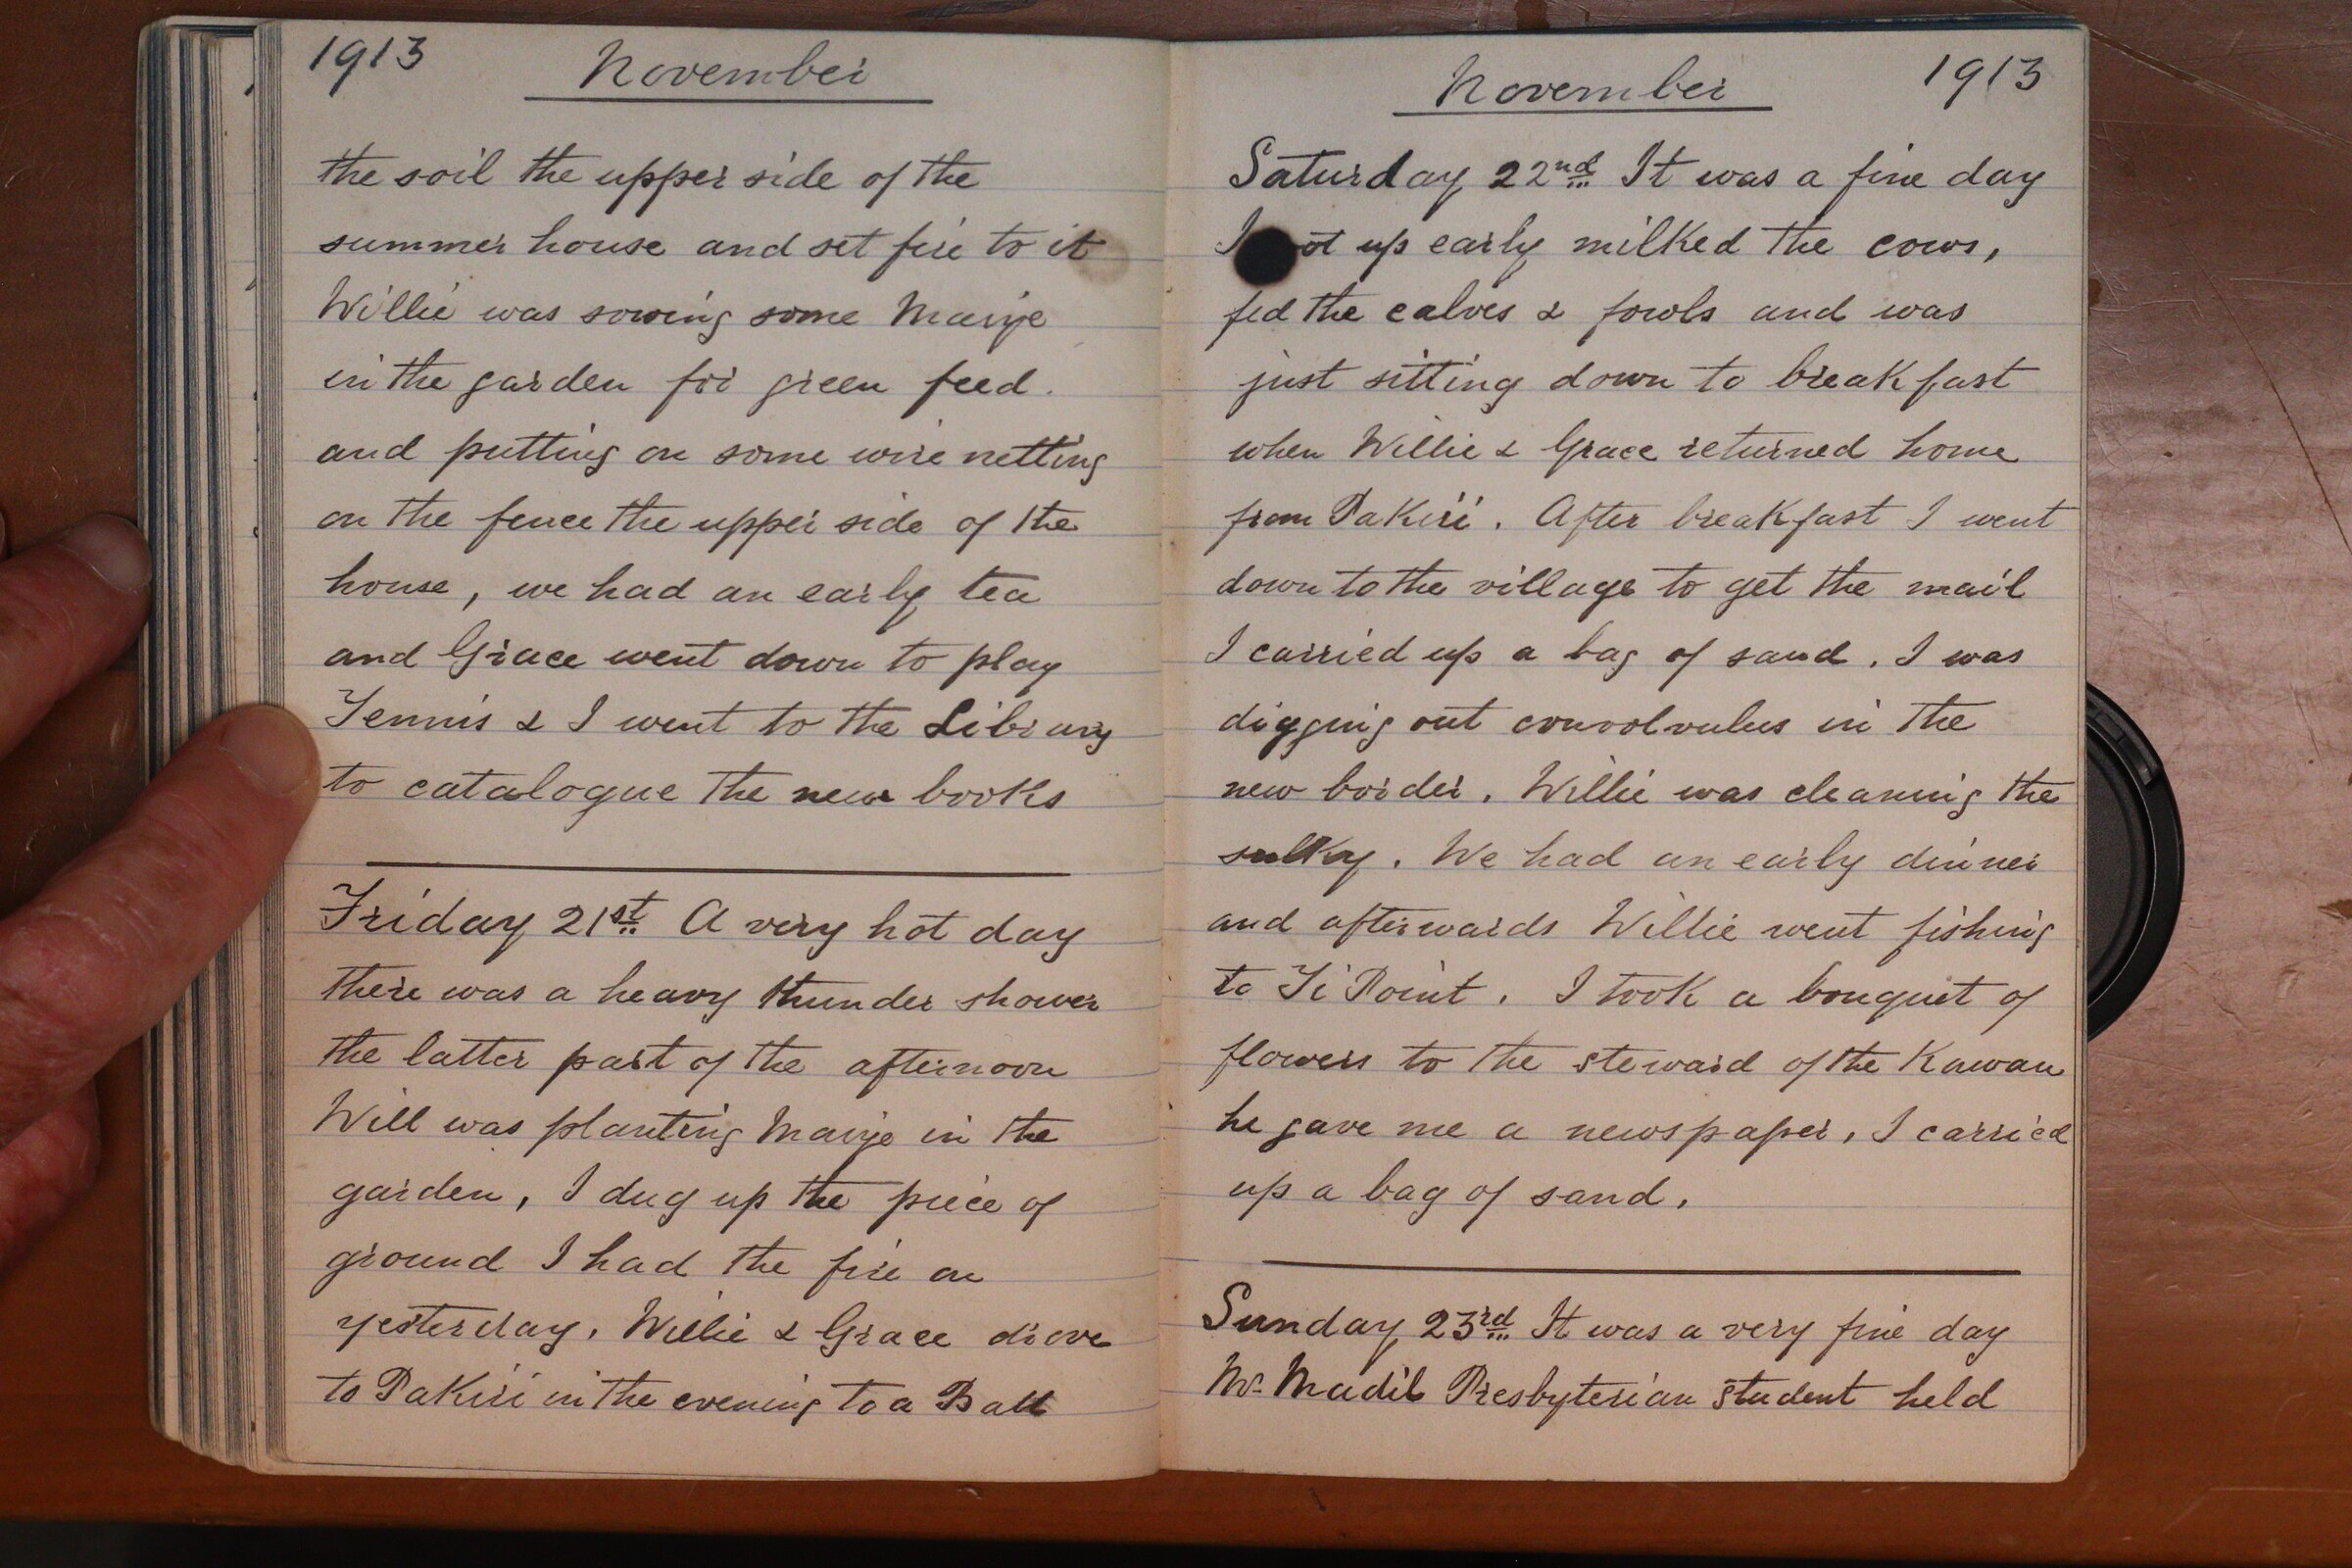 1913 November
the soil the upper side of the
summer house and set fire to it
Willie was sowing some Maize
in the garden for green feed.
and putting on some wire netting
on the fence the upper side of the
house, we had an early tea
and Grace went down to play
Tennis & I went to the Library
to catalogue the new books
Friday 21st A very hot day
there was a heavy thunder shower
the latter part of the afternoon
Will was planting Maize in the
garden, I dug up the piece of
ground I had the fire on
yesterday. Willie & Grace drove
to Pakiri in the evening to a Ball
November 1913
Saturday 22nd It was a fine day
I up early milked the cows,
fed the calves & fowls and was
just sitting down to breakfast
when Willie & Grace returned home
from Pakiri. After breakfast I went
down to the village to get the mail
I carried up a bag of sand. I was
digging out convolvulus in the
new border. Willie was cleaning the
sulky. We had an early dinner
and afterwards Willie went fishing
to Ti Point. I took a bouquet of
flowers to the steward of the Kawau
he gave me a newspaper, I carried
up a bag of sand.
Sunday 23rd It was a very fine day
Mr. Madil Presbyterian student held